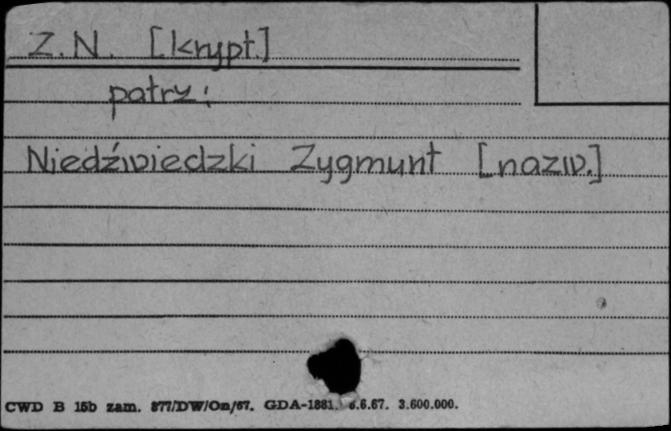 Z.N. [krypt.]
patrz:
Niedźwiedzki Zygmunt [nazw.]
CWD B 15b zam. 877/DW/On/67. GDA-1881. 6.6.67. 3.600.000.